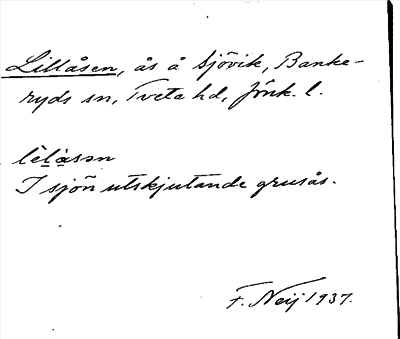 Lillåsen, ås å Sjövik, Banke-
ryds sn, Tveta hd, Jönk. l.
lèlàsən
I sjön utskjutande grusås.
F. Neij 1937.